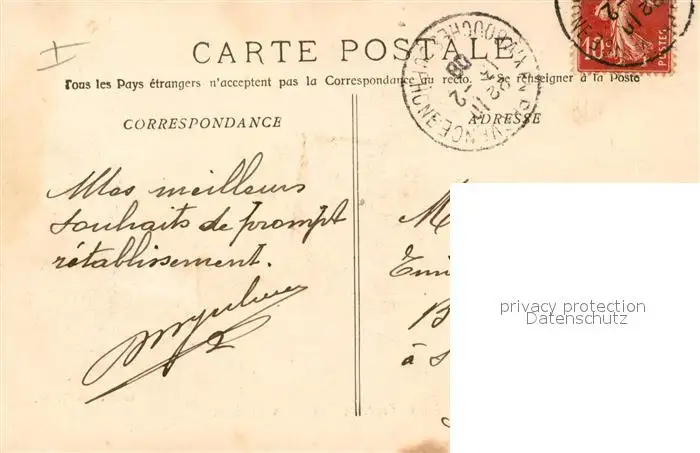 CARTE POSTALE
Tous les Pays étrangers n'acceptent pas la Correspondance au recto. - Se renseigner à la Poste
CORRESPONDANCE
ADRESSE
Mes meilleurs
souhaits de prompt
rétablissement.
10c
POSTES
M
Emi
B
à S
privacy protection
Datenschutz